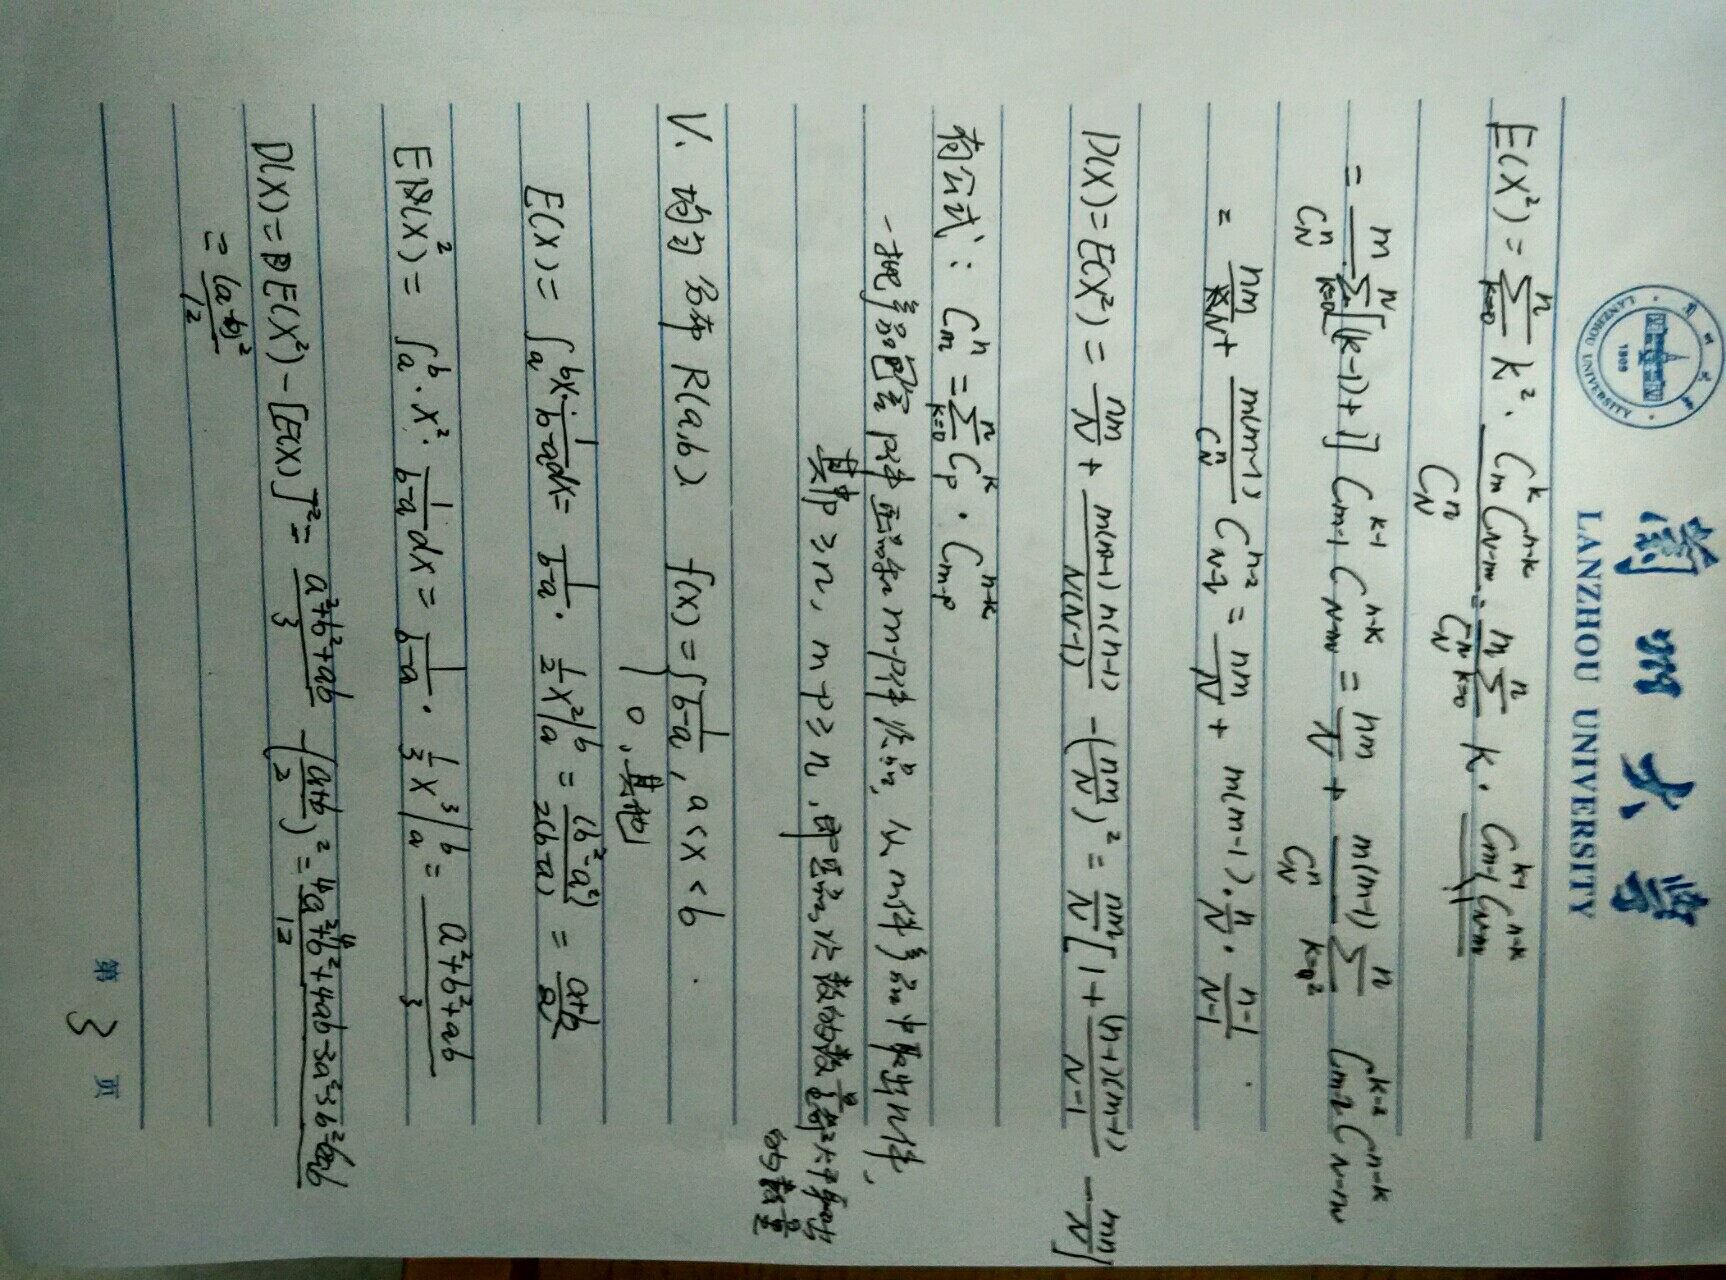 兰州大学
LANZHOU UNIVERSITY
LANZHOU UNIVERSITY
1909
E(X²) = Σ_{k=0}^{n} k² · \frac{C_m^k C_{N-m}^{n-k}}{C_N^n} = \frac{m}{C_N^n} Σ_{k=0}^{n} k · C_{m-1}^{k-1} C_{N-m}^{n-k}
= \frac{m}{C_N^n} Σ_{k=0}^{n} [(k-1)+1] C_{m-1}^{k-1} C_{N-m}^{n-k} = \frac{nm}{N} + \frac{m(m-1)}{C_N^n} Σ_{k=2}^{n} C_{m-2}^{k-2} C_{N-m}^{n-k}
= \frac{nm}{N} + \frac{m(m-1)}{C_N^n} C_{N-2}^{n-2} = \frac{nm}{N} + m(m-1) · \frac{n}{N} · \frac{n-1}{N-1}.
D(X) = E(X²) = \frac{nm}{N} + \frac{m(m-1)n(n-1)}{N(N-1)} - (\frac{nm}{N})² = \frac{nm}{N} [1 + \frac{(n-1)(m-1)}{N-1} - \frac{mn}{N}]
有公式: C_m^n = Σ_{k=0}^{n} C_p^k · C_{m-p}^{n-k}
一批产品包含 p件正品 m-p件次品, 从 m件产品中取出n件,
其中p ≥ n, m-p ≥ n, 即正品,次品的数量都大于取出
的数量
V. 均匀分布 R(a,b) f(x) = { \frac{1}{b-a}, a<x<b
0, 其他
E(X) = ∫_a^b x · \frac{1}{b-a} dx = \frac{1}{b-a} · \frac{1}{2} x² |_a^b = \frac{(b²-a²)}{2(b-a)} = \frac{a+b}{2}
E(X²) = ∫_a^b · x² · \frac{1}{b-a} dx = \frac{1}{b-a} · \frac{1}{3} x³ |_a^b = \frac{a²+b²+ab}{3}
D(X) = E(X²) - [E(X)]² = \frac{a²+b²+ab}{3} - (\frac{a+b}{2})² = \frac{4a²+4b²+4ab-3a²-3b²-6ab}{12}
= \frac{(a-b)²}{12}
第 3 页